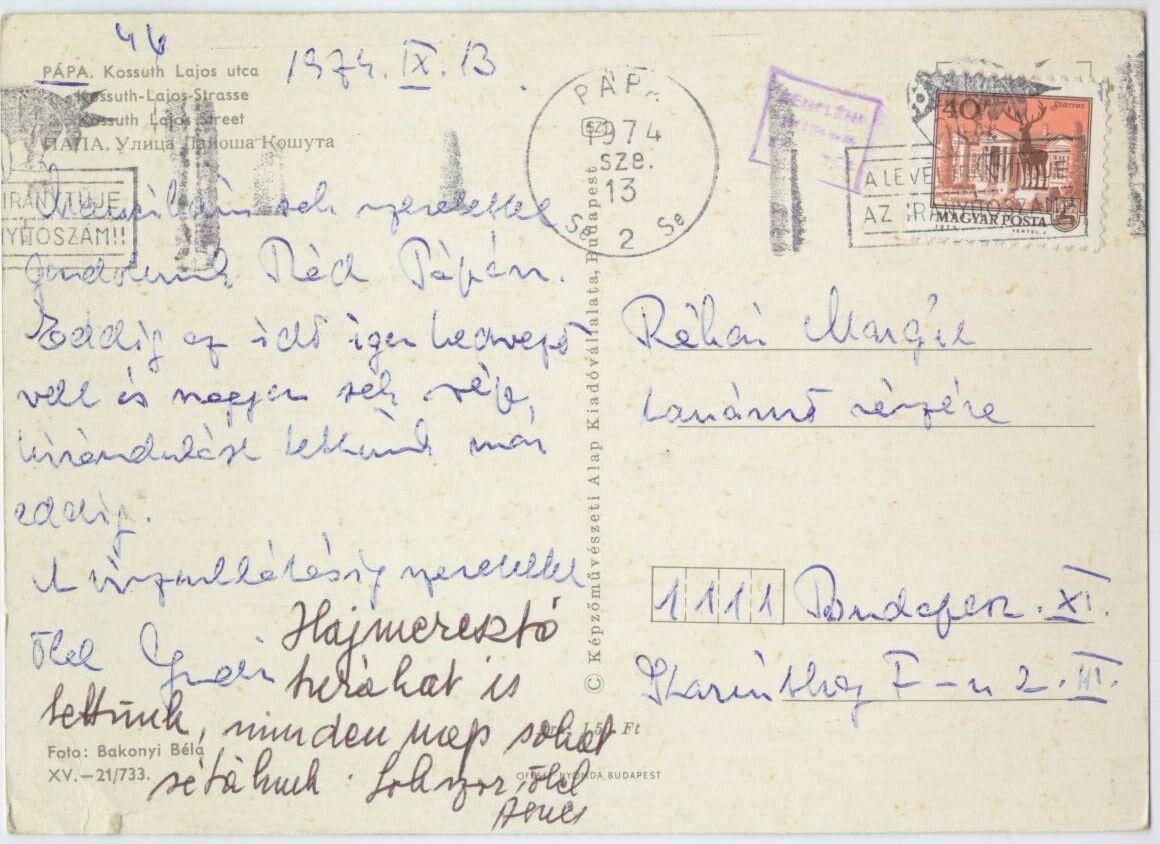 44
1974. IX. 13.
PÁPA. Kossuth Lajos utca
Kossuth-Lajos-Strasse
Kossuth Lajos Street
ПАПА. Улица Лайоша Кошута
PÁP
1974
sze.
13
2
40
Szarvas
MAGYAR POSTA
A LEVE
AZ IRÁNYÍTÓSZÁM
IRÁNYÍTÓSZÁM!!
sok szeretettel
gondolunk Rád Pápán.
Eddig az idő igen kedvező
volt és nagyon sok szép
kirándulást tettünk már
eddig.
A viszontlátásig szeretettel
ölel
Hajmeresztő
túrákat is
tettünk, minden nap sokat
sétálunk. Sokszor ölel
Ágnes
© Képzőművészeti Alap Kiadóvállalata, Budapest
Margit
tanárnő részére
1111 Budapest. XI.
Karinthy F-u 2. III.
Foto: Bakonyi Béla
XV.—21/733.
Ára: 1,50 Ft
OFFSET NYOMDA, BUDAPEST